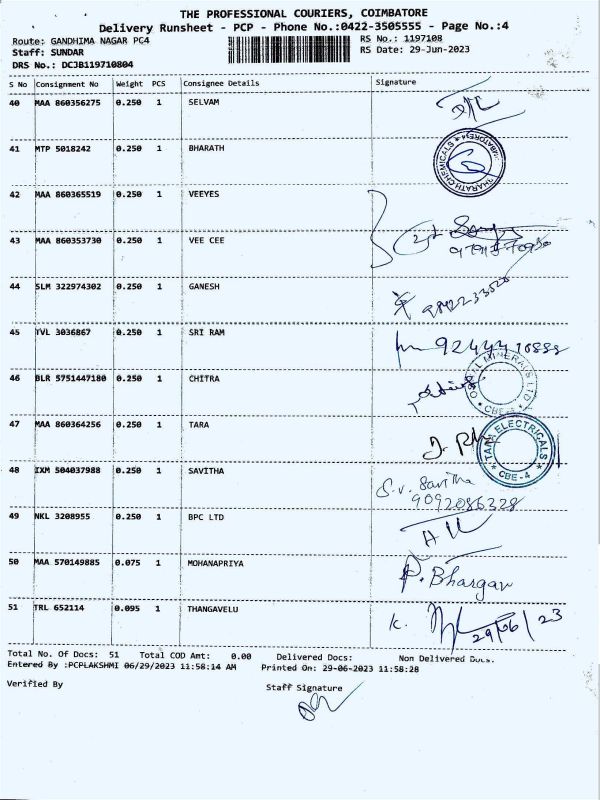 THE PROFESSIONAL COURIERS, COIMBATORE
Delivery Runsheet - PCP - Phone No.:0422-3505555 - Page No.:4
Route: GANDHIMA NAGAR PC4 RS No.: 1197108
Staff: SUNDAR RS Date: 29-Jun-2023
DRS No.: DCJB119710804
S No Consignment No Weight PCS Consignee Details Signature
40 MAA 860356275 0.250 1 SELVAM
41 MTP 5018242 0.250 1 BHARATH
BHARATH CHEMICALS
42 MAA 860365519 0.250 1 VEEYES
43 MAA 860353730 0.250 1 VEE CEE
44 SLM 322974302 0.250 1 GANESH
45 TVL 3036867 0.250 1 SRI RAM
46 BLR 5751447180 0.250 1 CHITRA
MINERALS LTD
47 MAA 860364256 0.250 1 TARA
TARA ELECTRICALS * CBE-4 *
48 IXM 504037988 0.250 1 SAVITHA S.v. Savitha
9092086328
49 NKL 3208955 0.250 1 BPC LTD
50 MAA 570149885 0.075 1 MOHANAPRIYA P. Bhargav
51 TRL 652114 0.095 1 THANGAVELU K. 29/06/23
Total No. Of Docs: 51 Total COD Amt: 0.00 Delivered Docs: Non Delivered Docs.
Entered By :PCPLAKSHMI 06/29/2023 11:58:14 AM Printed On: 29-06-2023 11:58:28
Verified By Staff Signature